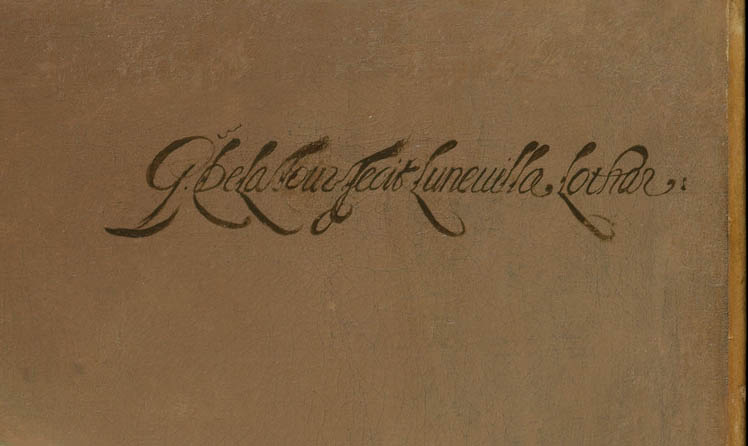 G. De La Tour Fecit Luneuilla Lothar: